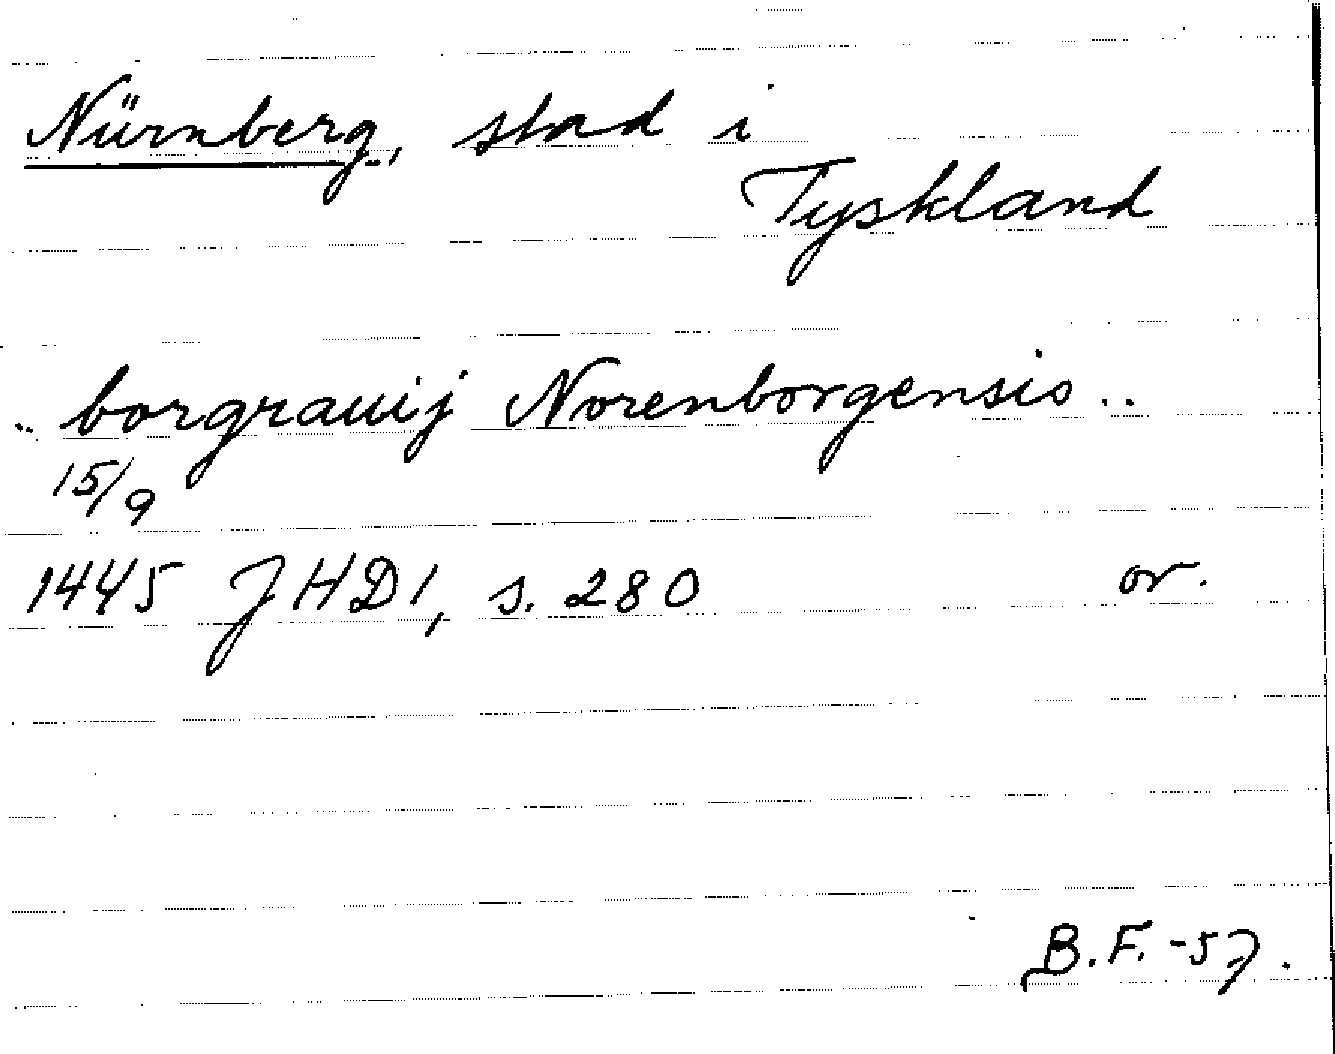 Nürnberg, stad i
Tyskland
.. borgrauij Norenborgensis ..
15/9
1445 JHD1, s. 280 or.
B.F. -57.